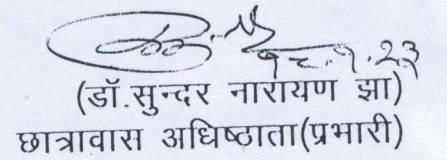 (डॉ.सुन्दर नारायण झा)
छात्रावास अधिष्ठाता(प्रभारी)